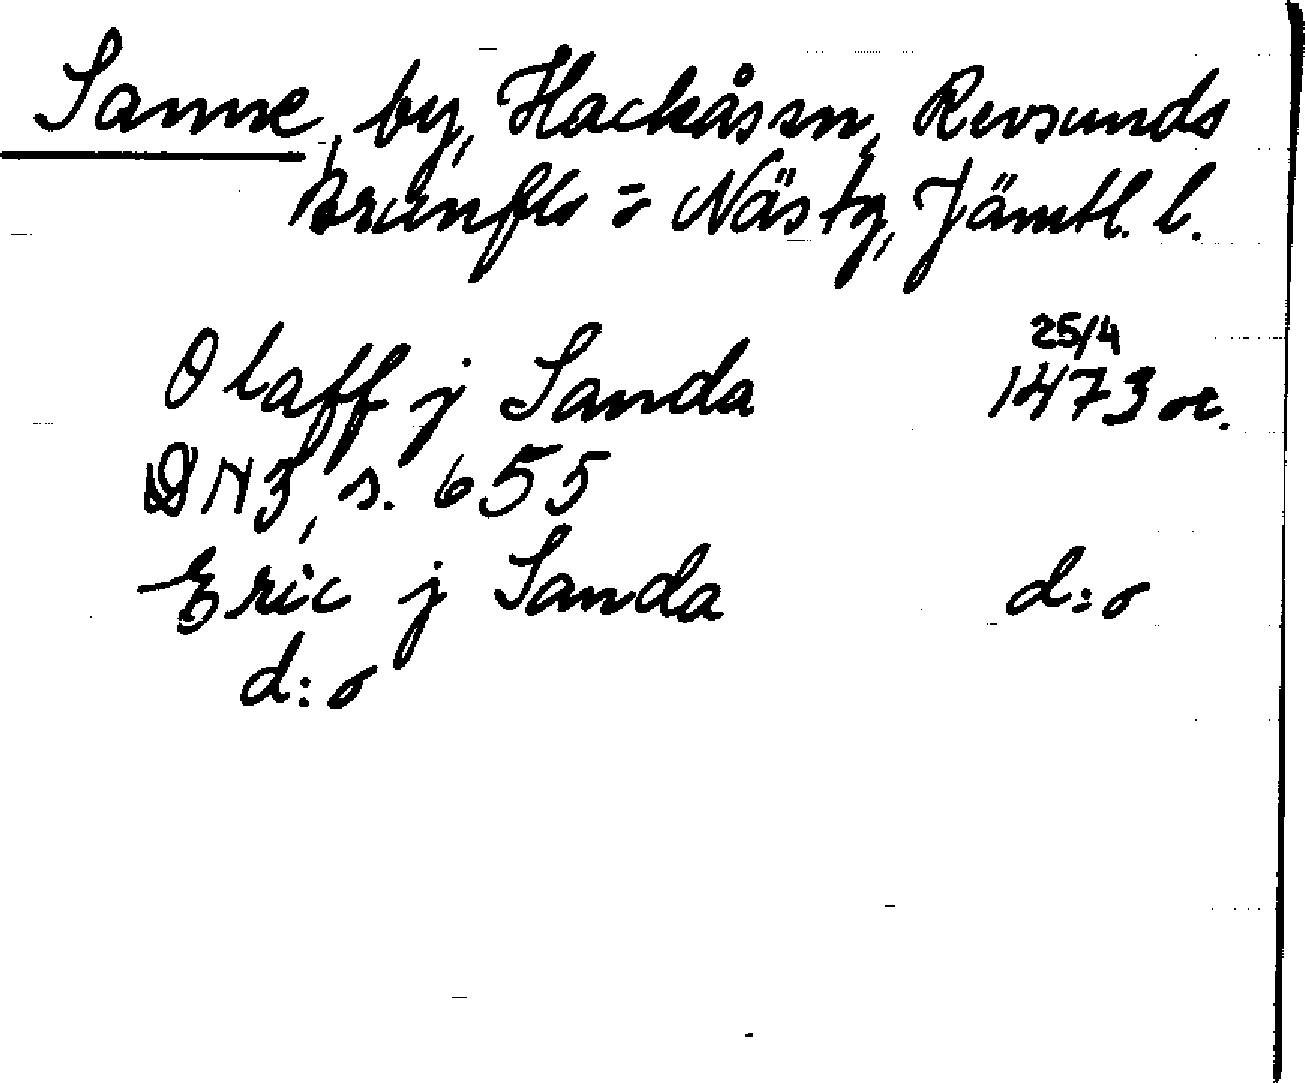 Sanne, by, Hackås sn, Revsunds
Brunflo = o Näs tg, Jämtl. l.
25/4
Olaff j Sanda 1473 or.
DN3, s. 655
Eric j Sanda d:o
d:o